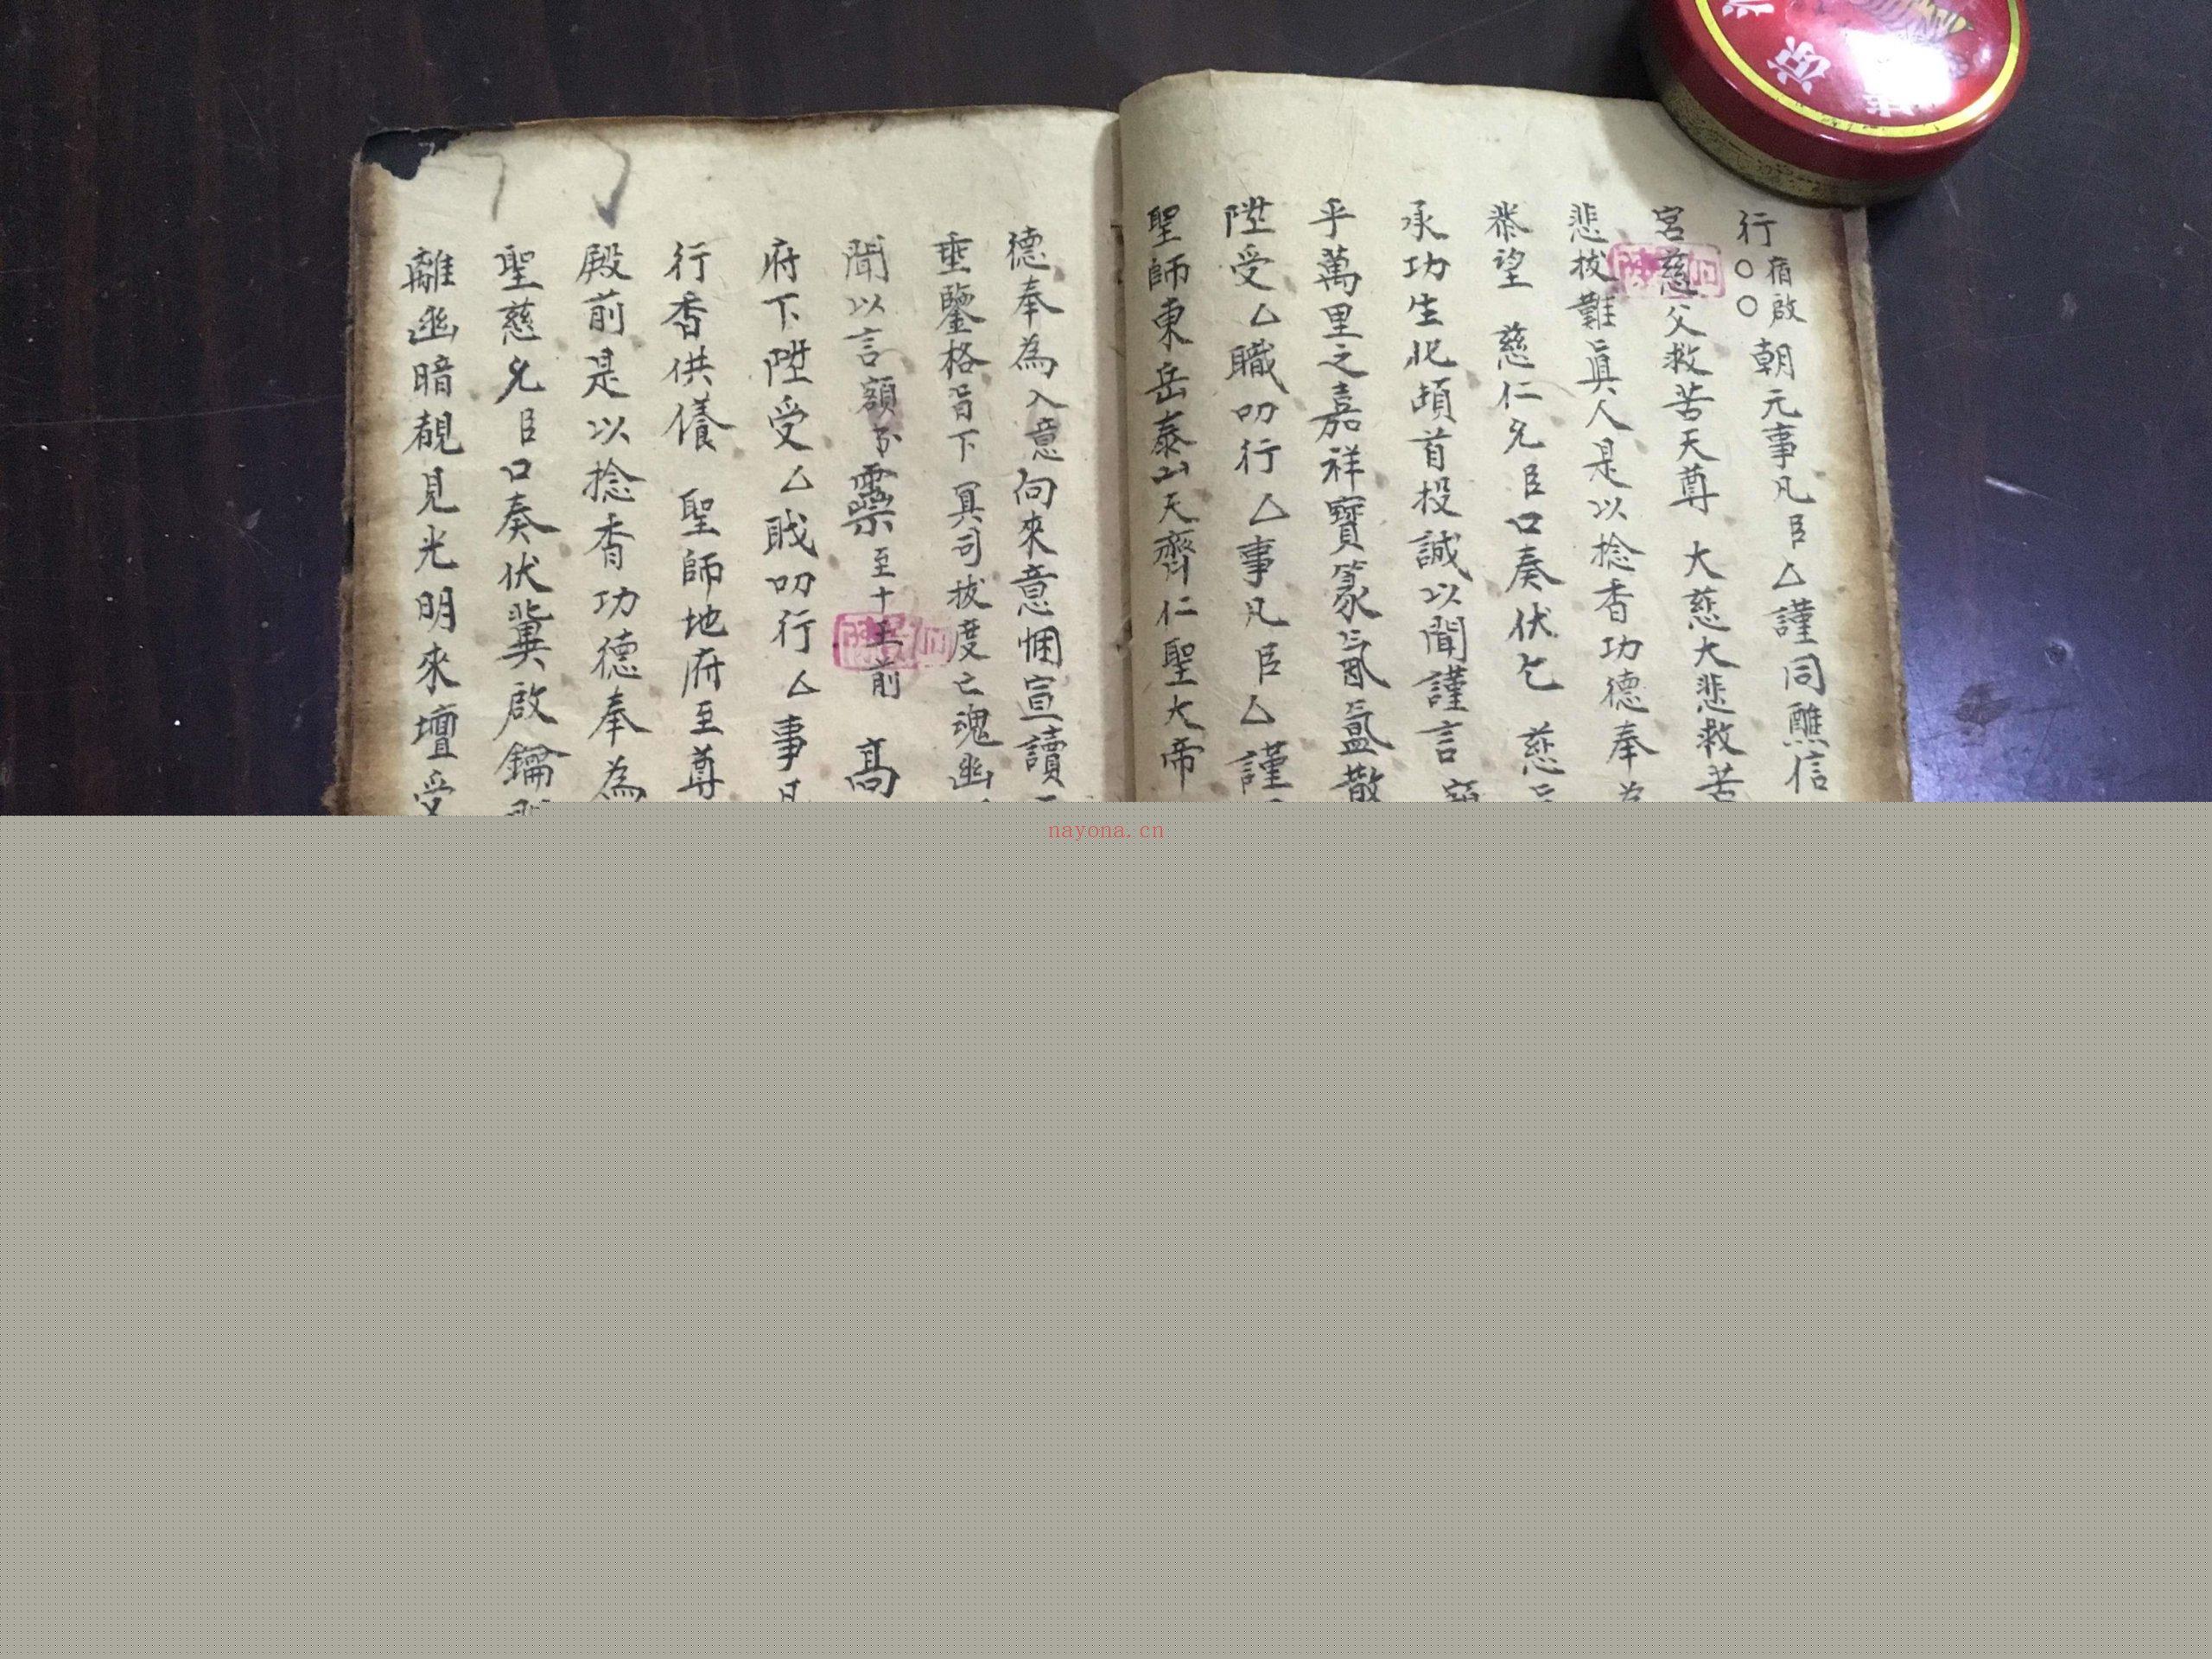 行宿啟〇〇朝元事凡臣厶謹同醮信
宮慈父救苦天尊 大慈大悲救苦
悲拔難真人是以捻香功德奉為
恭望 慈仁允臣口奏伏乞 慈
承功生化頓首投誠以聞謹言
乎萬里之嘉祥寶篆氤氳散
陞受厶職叨行厶事凡臣厶謹
聖師東岳泰山天齊仁聖大帝
德奉為入意向來意悃宣讀
垂鑒格旨下 冥司拔度亡魂幽
聞以言額 靈至十王前 高
府下陞受厶职叨行厶事凡
行香供養 聖師地府至尊
殿前是以捻香功德奉為
聖慈允臣口奏伏冀啟鑰
離幽暗覩見光明來壇受
nayona.cn